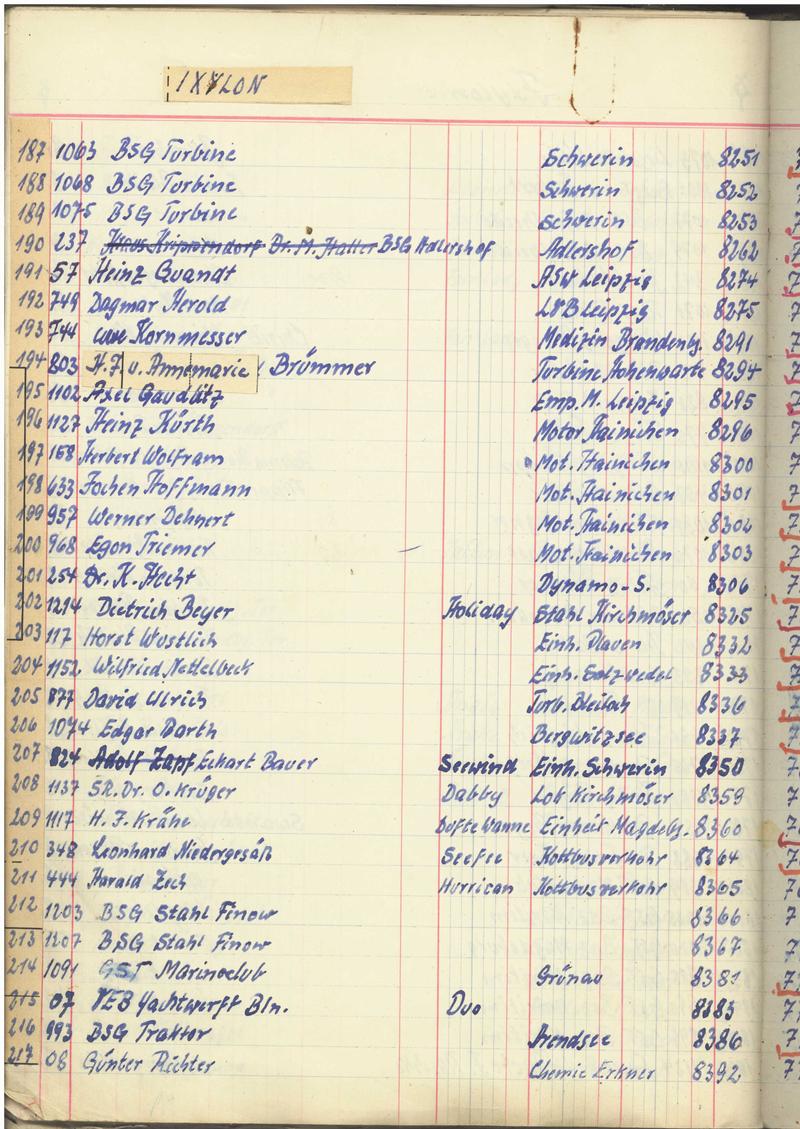 IXYLON
187 1063 BSG Turbine Schwerin 8251
188 1068 BSG Turbine Schwerin 8252
189 1075 BSG Turbine Schwerin 8253
190 237 Klaus Krippendorf Dr. M. Haller BSG Adlershof Adlershof 8262
191 57 Heinz Quandt ASW Leipzig 8274
192 749 Dagmar Herold LVB Leipzig 8275
193 744 Uwe Kornmesser Medizin Brandenbg. 8291
194 803 H.J. u. Annemarie Brümmer Turbine Hohenwarte 8294
195 1102 Axel Gaudlitz Emp. M. Leipzig 8295
196 1127 Heinz Kürth Motor Hainichen 8296
197 168 Herbert Wolfram Mot. Hainichen 8300
198 633 Jochen Hoffmann Mot. Hainichen 8301
199 957 Werner Dehnert Mot. Hainichen 8302
200 968 Egon Triemer Mot. Hainichen 8303
201 254 Dr. K. Hecht Dynamo-S. 8306
202 1214 Dietrich Beyer Holiday Stahl Kirchmöser 8325
203 117 Horst Wustlich Einh. Plauen 8332
204 1152 Wilfried Nettelbeck Einh. Salzwedel 8333
205 877 David Ulrich Turb. Bleiloch 8336
206 1074 Edgar Barth Bergwitzsee 8337
207 824 Adolf Zapf Eckart Bauer Seewind Einh. Schwerin 8350
208 1137 SR. Dr. O. Krüger Dabby Lok Kirchmöser 8359
209 1117 H. J. Krähe Dufte Wanne Einheit Magdebg. 8360
210 348 Leonhard Niedergesäß Seefee Kottbusverkehr 8264
211 444 Harald Zech Hurrican Kottbusverkehr 8365
212 1203 BSG Stahl Finow 8366
213 1207 BSG Stahl Finow 8367
214 1091 GST Marineclub Grünau 8381
215 07 VEB Yachtwerft Bln. Duo 8383
216 993 BSG Traktor Arendsee 8386
217 08 Günter Richter Chemie Erkner 8392